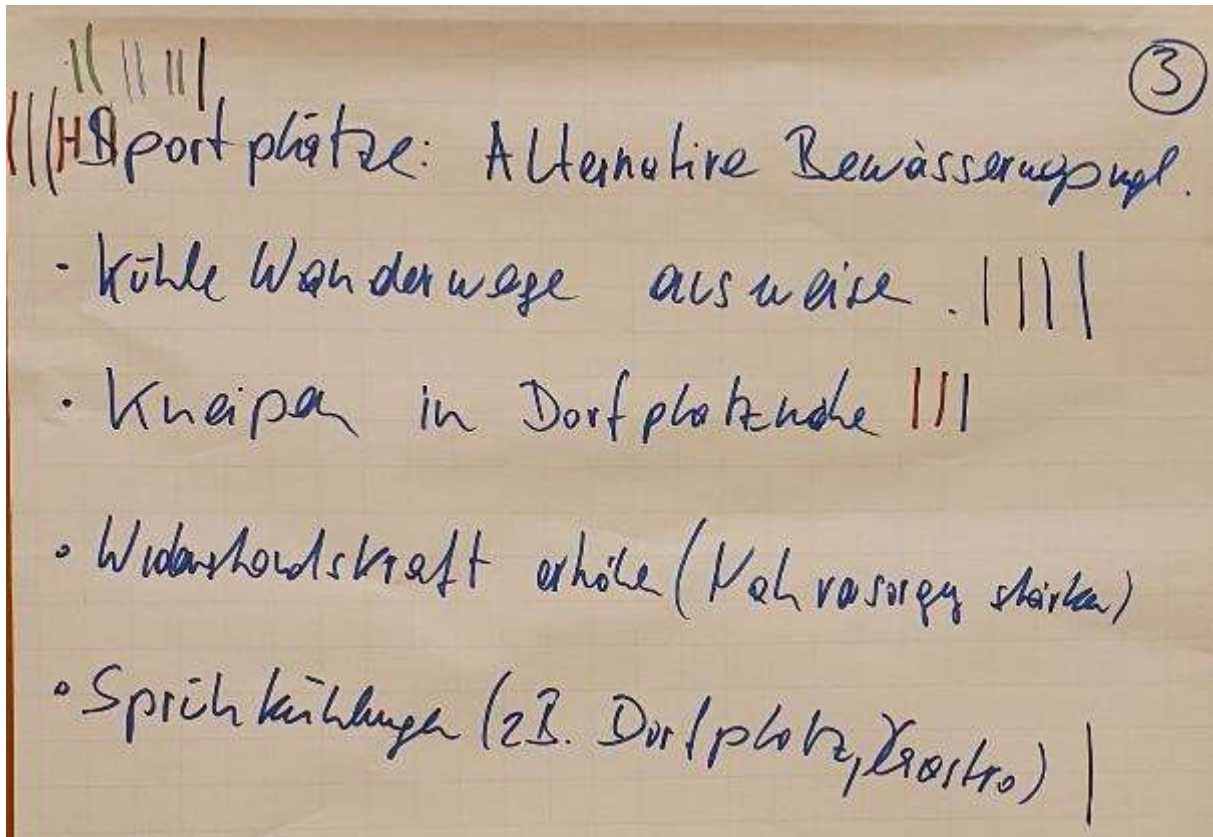 3
Sportplätze: Alternative Bewässerungsmgl.
· Kühle Wanderwege ausweise.
· Kneipen in Dorfplatznähe
· Widerstandskraft erhöhe (Nahversorgg stärken)
· Sprühkühlungen (zB. Dorfplatz, Gastro)